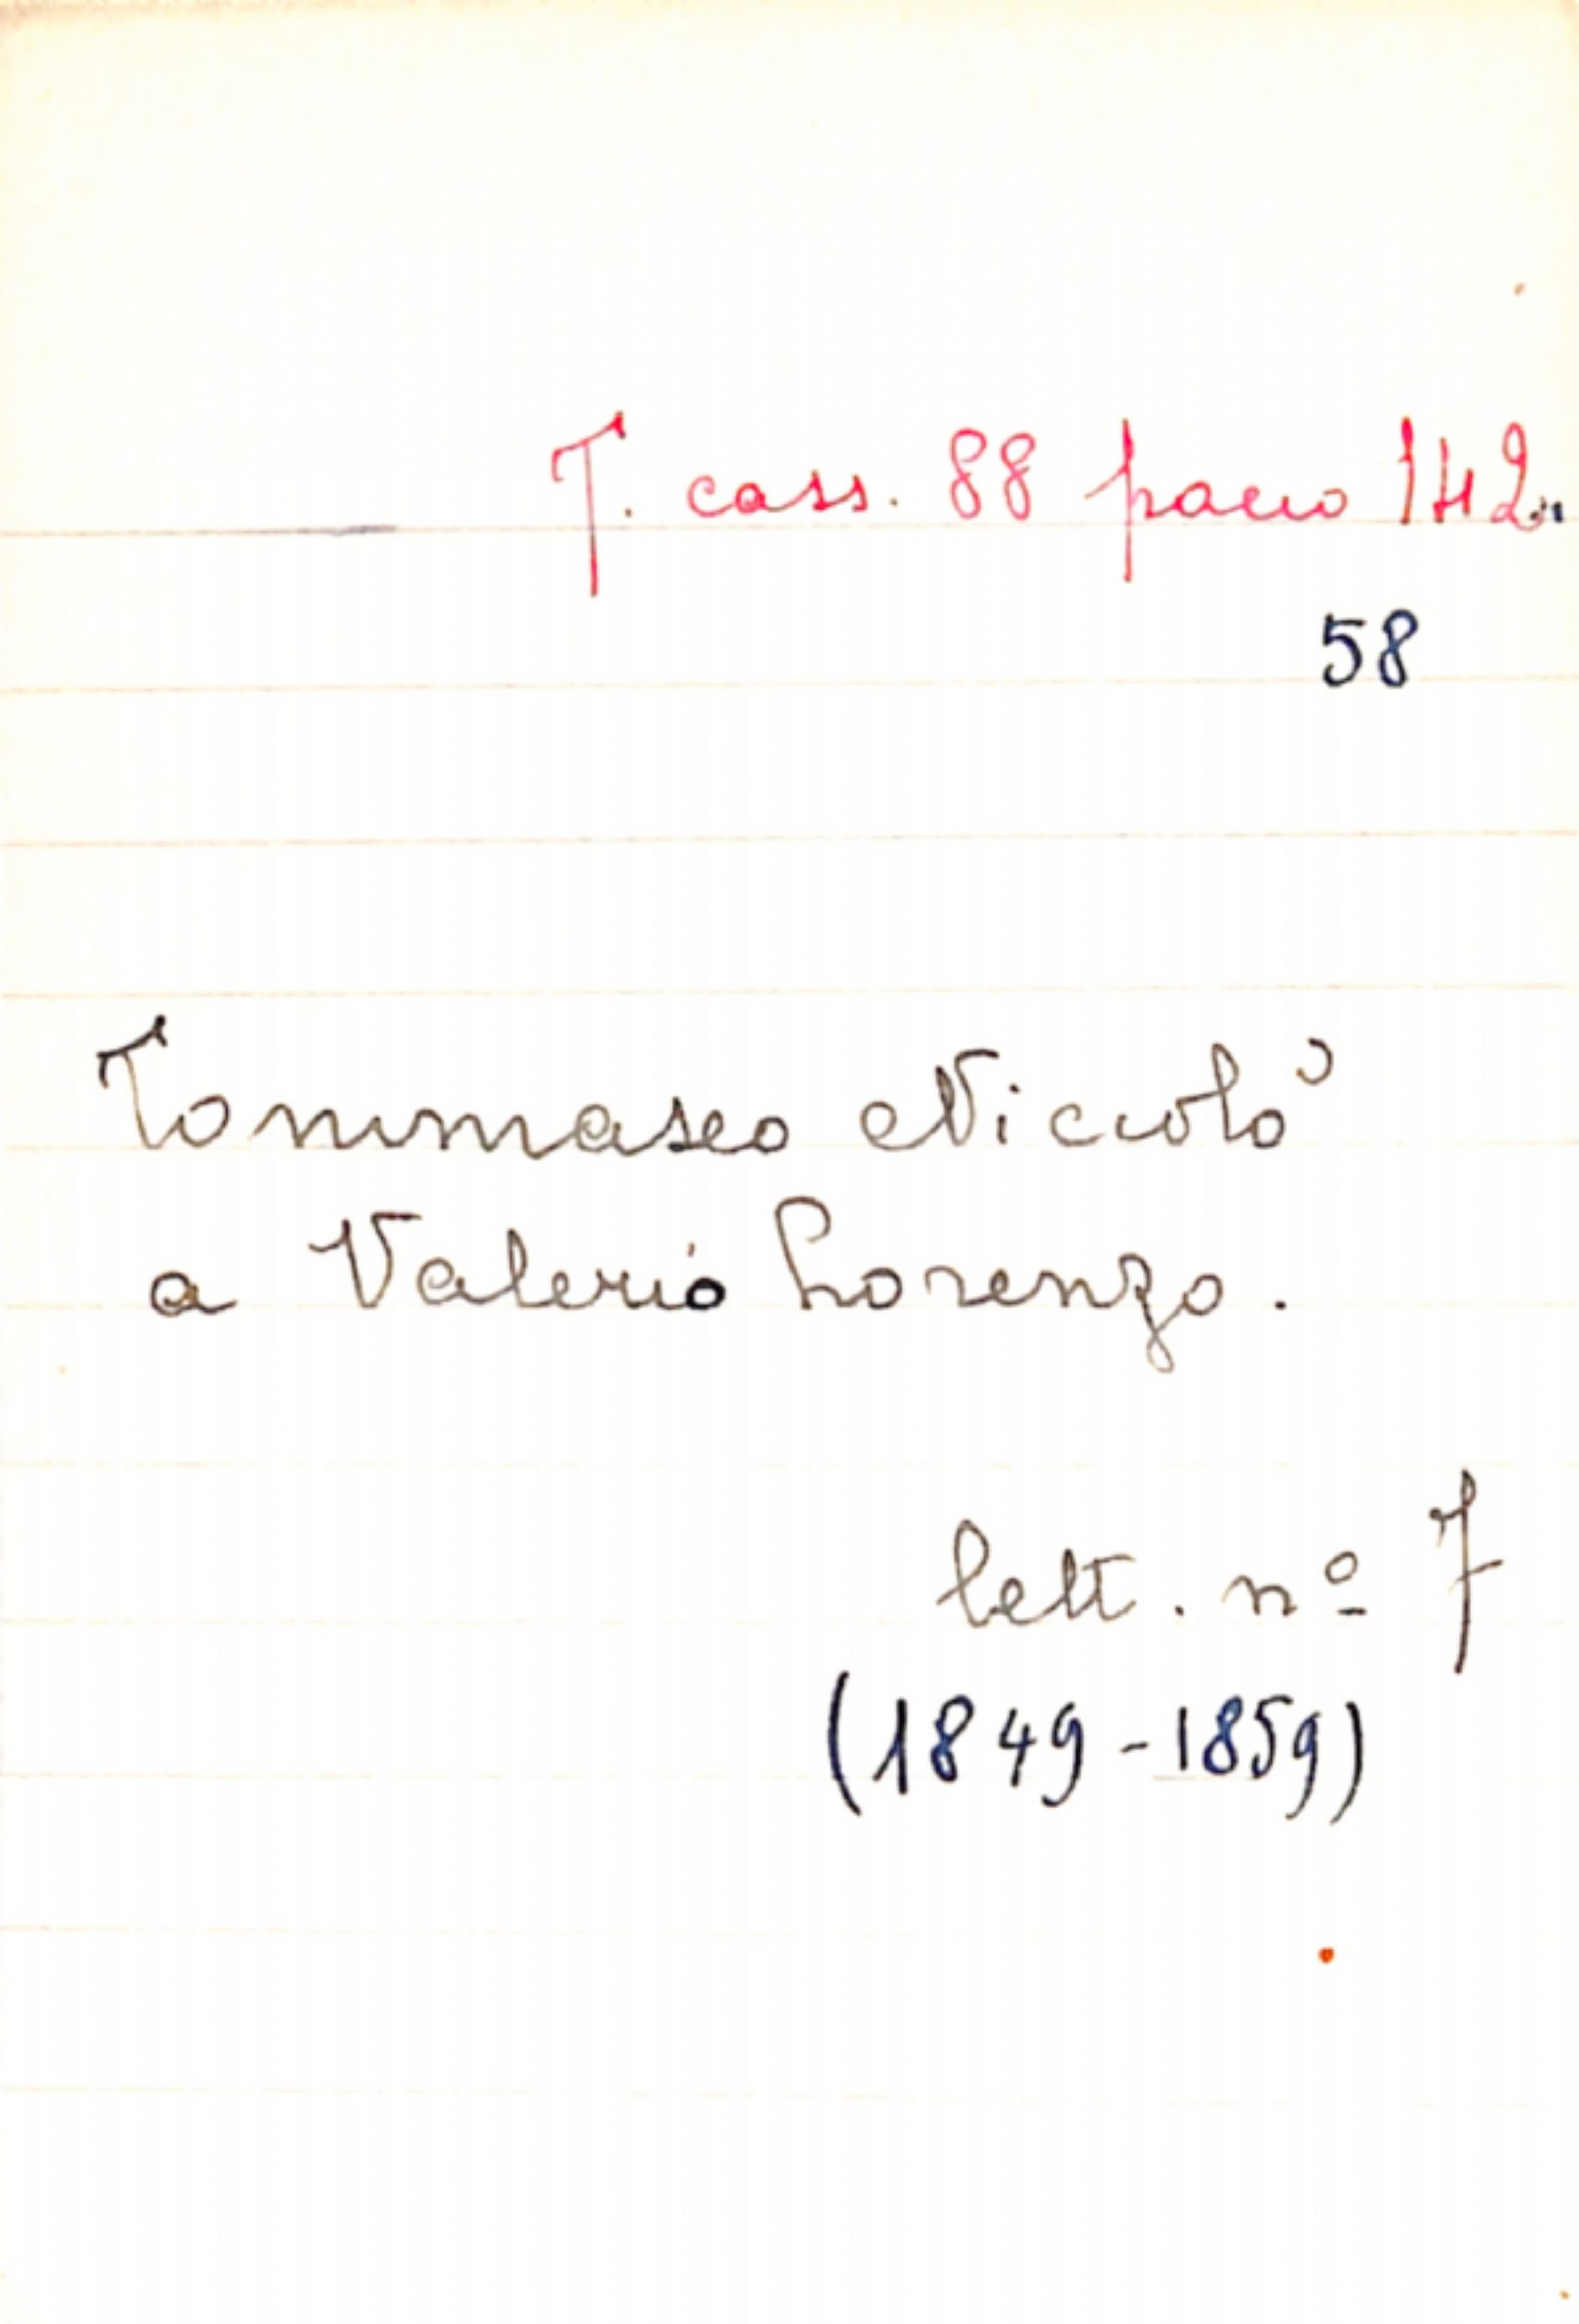 T. cass. 88 pacco 142.
58
Tommaseo Niccolò
a Valerio Lorenzo.
lett. nº 7
(1849-1859)